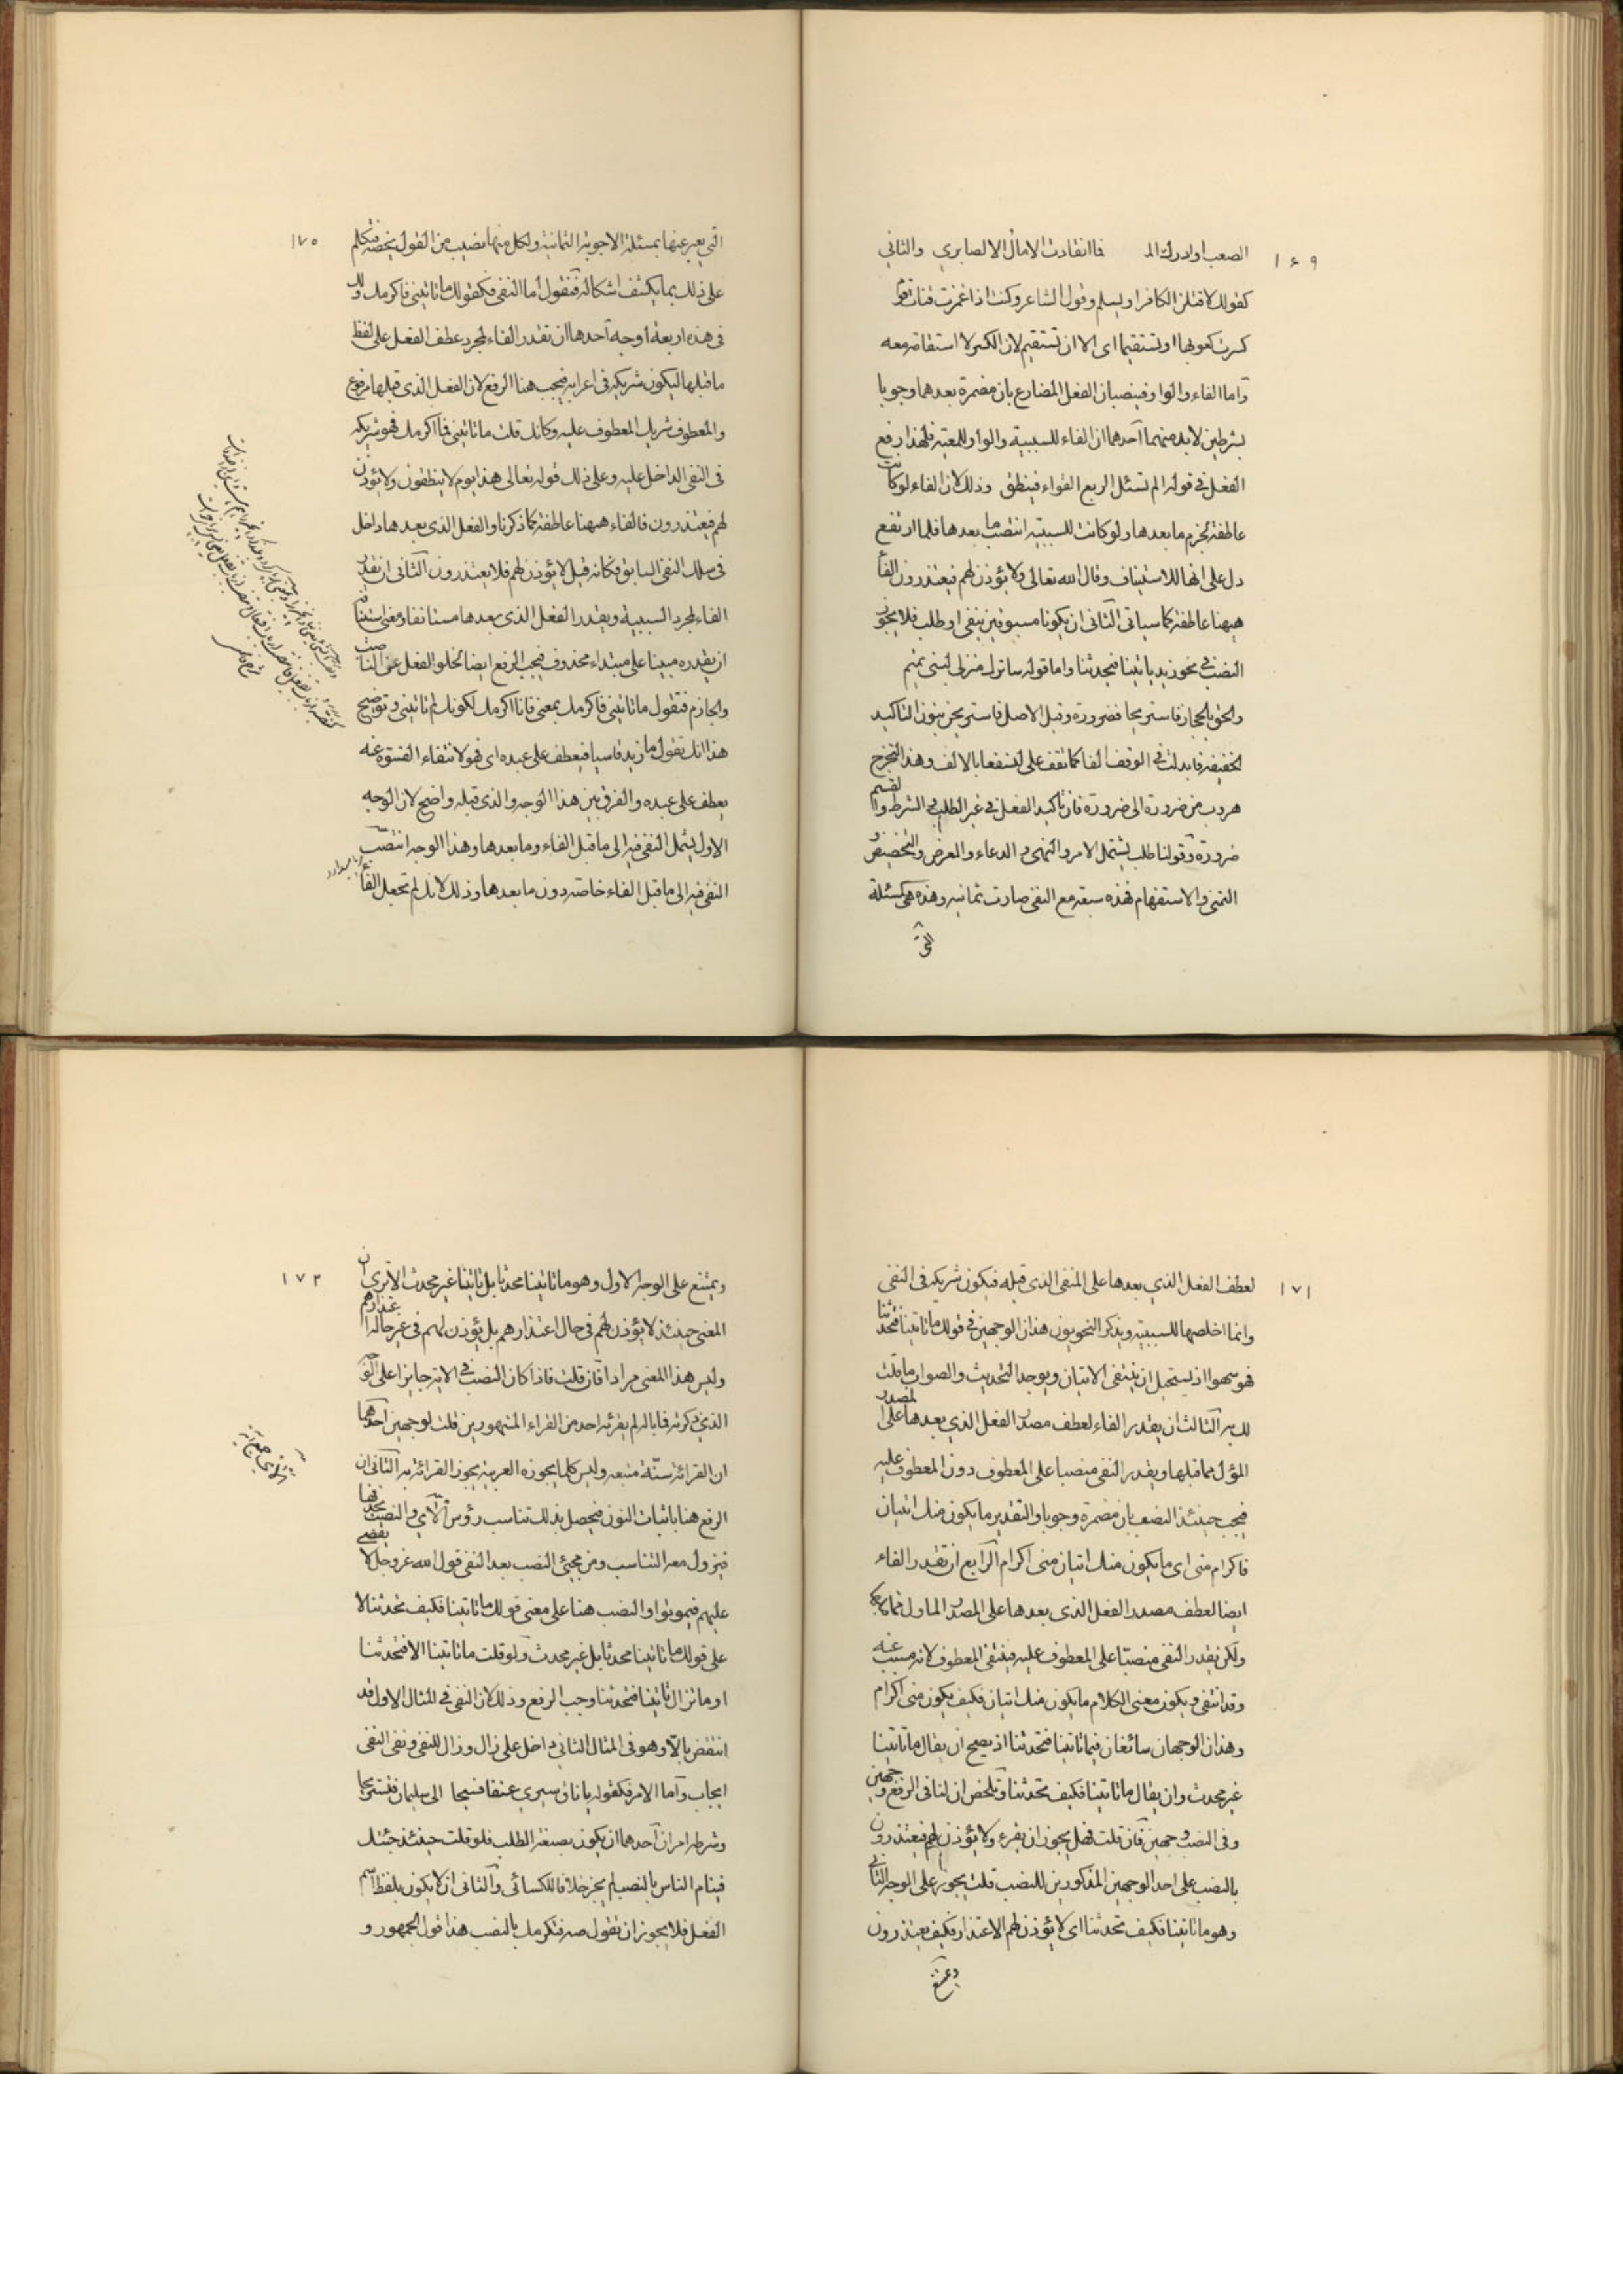 ١٦٩
الصعب او ادرك الم فما انقادت الامال الا لصابري والثاني
كقولك لاقتلن الكافر او يسلم وقول الشاعر وكنت اذا غمزت قناة قوم
كسرت كعوبها او تستقيما اى الا ان تستقيم لان الكسر لا استقامة معه
واما الفاء والواو فينصبان الفعل المضارع بان مضمرة بعدهما وجوبا
بشرطين لابد منهما آحدهما ان الفاء للسببية والواو للمعية فلهذا رفع
الفعل في قوله الم تسئل الربع القواء فينطق وذلك لان الفاء لو كانت
عاطفة لجزم ما بعدها ولو كانت للسببية انتصب ما بعدها فلما ارتفع
دل على انها للاستيناف وقال الله تعالى ولا يؤذن لهم فيعتذرون الفاء
هيهنا عاطفة كما سياتى الثانى ان يكونا مسبوقين بنفى او طلب فلا يجوز
النصب في نحو زيد ياتينا فيحدثنا واما قوله ساترك منزلى لبنى تميم
والحق بالحجاز فاستريحا فضرورة وقيل الاصل فاستريحن بنون التاكيد
الخفيفة فابدلت في الوقف الفا كما تقف على لنسفعا بالالف وهذا التخرج
هروب من ضرورة الى ضرورة فان تاكيد الفعل في غير الطلب و الشرط والقسم
ضرورة وقولنا طلب يشتمل الامر والنهى و الدعاء والعرض والتحضيض و
التمنى والاستفهام فهذه سبعة مع النفى صارت ثمانية وهذه هى مسئلة
التى
١٧٠
التي يعبر عنها بمسئلة الاجوبة الثمانية ولكل منها نصيب من القول يخصه فنتكلم
على ذلك بما يكشف اشكاله فنقول اما النفى فكقولك ما تاتينى فاكرمك ولك
فى هذه اربعة اوجه آحدها ان تقدر الفاء لمجرد عطف الفعل على لفظ
ما قبلها ليكون شريكه فى اعرابه فيجب هنا الرفع لان الفعل الذى قبلها مرفوع
والمعطوف شريك المعطوف عليه وكانك قلت ما تاتينى فما اكرمك فهو شريكه
فى النفى الداخل عليه وعلى ذلك قوله تعالى هذا يوم لا ينطقون ولا يؤذن
لهم فيعتذرون فالفاء هيهنا عاطفة كما ذكرنا والفعل الذى بعدها داخل
فى سلك النفى السابق فكانه قيل لا يؤذن لهم فلا يعتذرون الثانى ان تقدر
الفاء لمجرد السببية ويقدر الفعل الذى بعدها مستانفا ومعنى استينافه
ان يقدره مبينا على مبتداء محذوف فيجب الرفع ايضا لخلو الفعل عن الناصب
والجازم فنقول ما تاتينى فاكرمك بمعنى فانا اكرمك لكونك لم تاتينى وتوضيح
هذا انك تقول ما زيد قاسيا فيعطف على عبده اى فهو لانتفاء القسوة عنه
يعطف على عبده والفرق بين هذا الوجه والذى قبله واضح لان الوجه
الاول يشمل النفى فيه الى ما قبل الفاء وما بعدها وهذا الوجه انتصب
النفى فيه الى ما قبل الفاء خاصة دون ما بعدها وذلك لانك لم تجعل الفاء
١٧١
لعطف الفعل الذي بعدها على المنفى الذى قبله فيكون شريكه فى النفى
وانما اخلصها للسببية ويذكر النحويون هذان الوجهين في قولك ما تاتينا فتحدثنا
فهو سهوا اذ يستحيل ان ينتفى الاتيان ويوجد التحديث والصواب ما قلت
لك به الثالث ان يقدر الفاء لعطف مصدر الفعل الذي بعدها على المصدر
المؤل مما قبلها ويقدر النفى منصبا على المعطوف دون المعطوف عليه
فيجب حينئذ النصب بان مضمرة وجوبا والتقدير ما يكون منك اتيان
فاكرام منى اى ما يكون منك اتيان منى اكرام الرابع ان تقدر الفاء
ايضا لعطف مصدر الفعل الذى بعدها على المصدر الماول مما قبلها
ولكن يقدر النفى منصبّا على المعطوف عليه فينتفى المعطوف لانه مسبب عنه
وقد انتفى ويكون معنى الكلام ما يكون منك اتيان فكيف يكون منى اكرام
وهذان الوجهان سائغان فى ما تاتينا فتحدثنا اذ يصح ان يقال ما تاتينا
غير محدث وان يقال ما تاتينا فكيف تحدثنا وتلخص ان لنا فى الرفع وجهين
وفى النصب وجهين فان قلت فهل يجوز ان يقرء ولا يؤذن لهم فيعتذرون
بالنصب على احد الوجهين المذكورين للنصب قلت يجوز على الوجه الثانى
وهو ما تاتينا فكيف تحدثنا اى لا يؤذن لهم الاعتذار فكيف يعتذرون
ويمتنع
١٧٢
ويمتنع على الوجه الاول وهو ما تاتينا محدثا بل تاتينا غير محدث الا ترى ان
المعنى حينئذ لا يؤذن لهم فى حال اعتذارهم بل يؤذن لهم فى غير حالة اعتذارهم
وليس هذا المعنى مرادا فان قلت فاذا كان النصب في الاية جايزا على الوجه
الذي ذكرته فما باله لم يقرئه احد من القراء المشهورين قلت لوجهين آحدهما
ان القرائة سنّة متبعة وليس كلما يجوزه العربية يجوز القرائة به الثانى ان
الرفع هنا باثبات النون فيحصل بذلك تناسب رؤس الآي والنصب بحذفها
فيزول معه التناسب ومن مجيئ النصب بعد النفى قول الله عز وجل لا يقضى
عليهم فيموتوا والنصب هنا على معنى قولك ما تاتينا فكيف تحدثنا لا
على قولك ما تاتينا محدثا بل غير محدث ولو قلت ما تاتينا الا فتحدثنا
او ما تزال تاتينا فتحدثنا وجب الرفع وذلك لان النفى في المثال الاول قد
انتقض بالّا وهو فى المثال الثاني داخل على زال وزال للنفى ونفى النفى
ايجاب وآما الامر فكقوله يا ناق سيري عنقا فسيحا الى سليمان فنستريحا
وشرطه امران آحدهما ان يكون بصيغة الطلب فلو قلت حينئذ حسبك
فينام الناس بالنصب لم يجز خلافا للكسائى والثانى ان لا يكون بلفظ اسم
الفعل فلا يجوز ان تقول صه فنكرمك بالنصب هذا قول الجمهور و